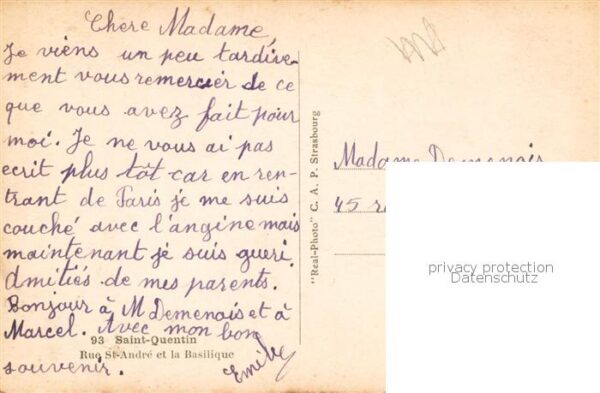 Chere Madame,
Je viens un peu tardive-
ment vous remercier de ce
que vous avez fait pour
moi. Je ne vous ai pas
ecrit plus tôt car en ren-
trant de Paris je me suis
couché avec l'angine mais
maintenant je suis gueri.
Amitiés de mes parents.
Bonjour à M Demenais et à
Marcel. Avec mon bon
souvenir.
93 Saint-Quentin
Rue St-André et la Basilique
"Real-Photo" C. A. P. Strasbourg
Madame Demenais
45
privacy protection
Datenschutz